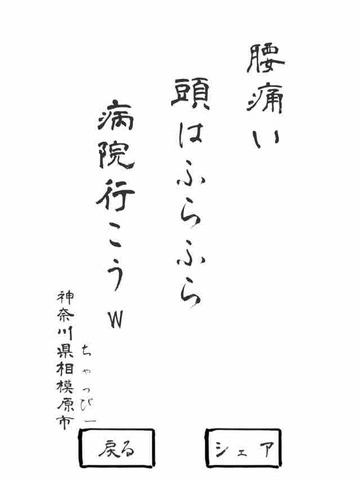 腰痛い
頭はふらふら
病院行こうw
ちゃっぴー
神奈川県相模原市
戻る
シェア